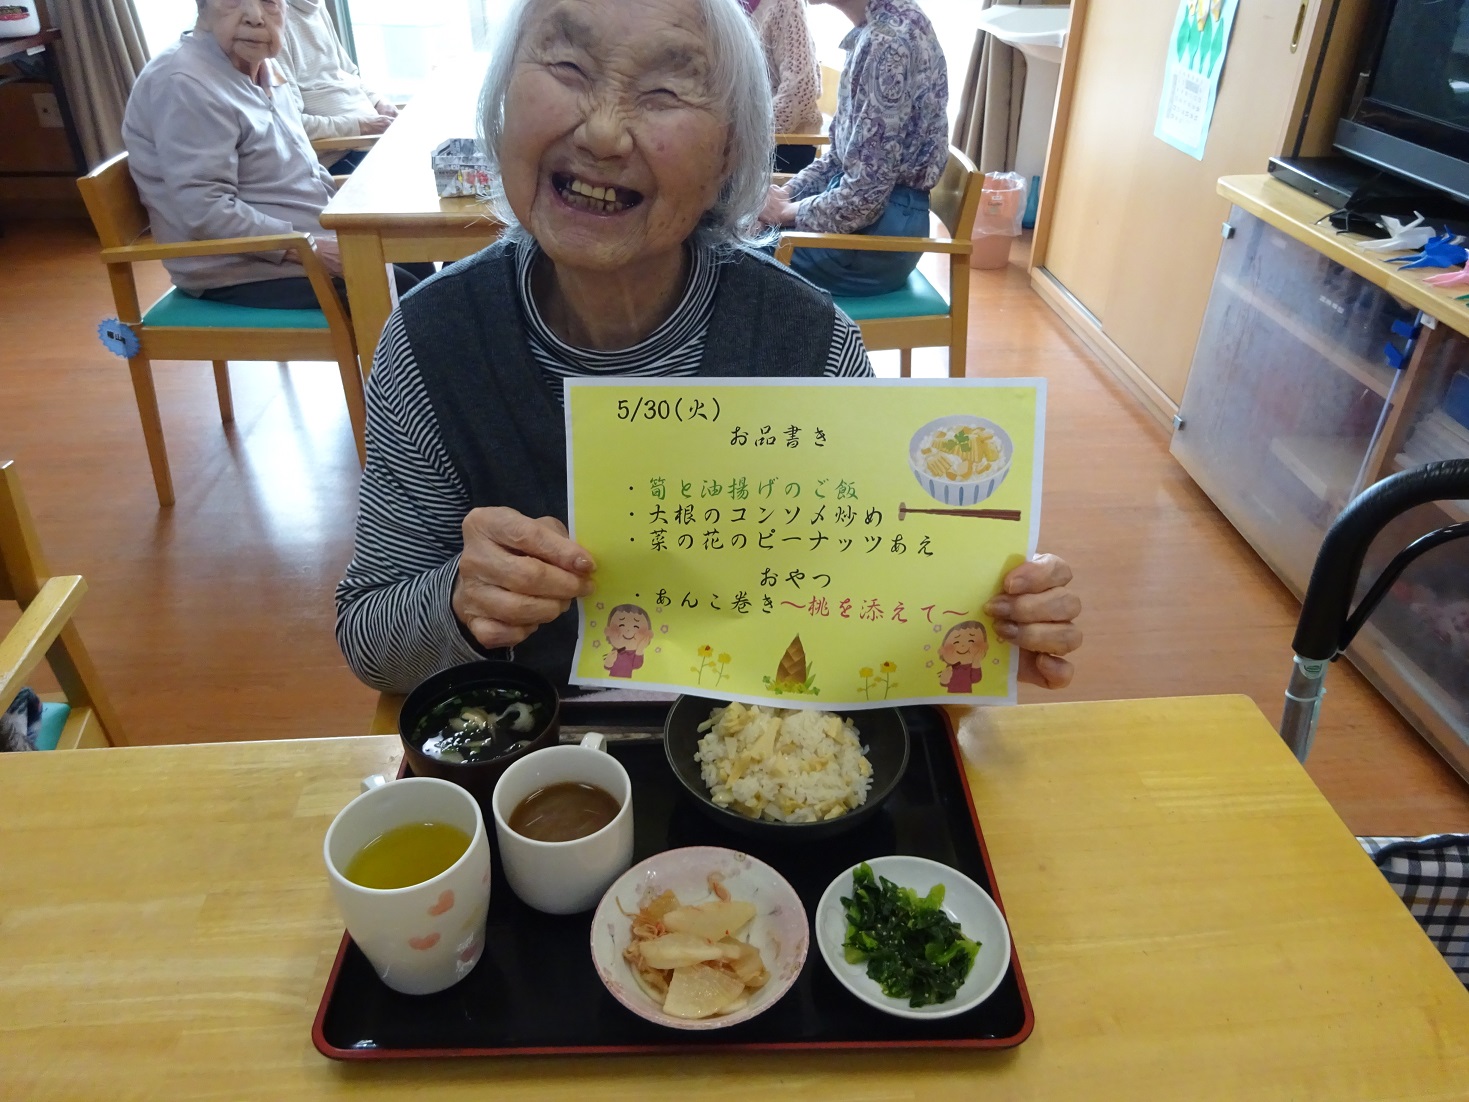 5/30(火)
お品書き
・筍と油揚げのご飯
・大根のコンソメ炒め
・菜の花のピーナッツあえ
おやつ
・あんこ巻き〜桃を添えて〜